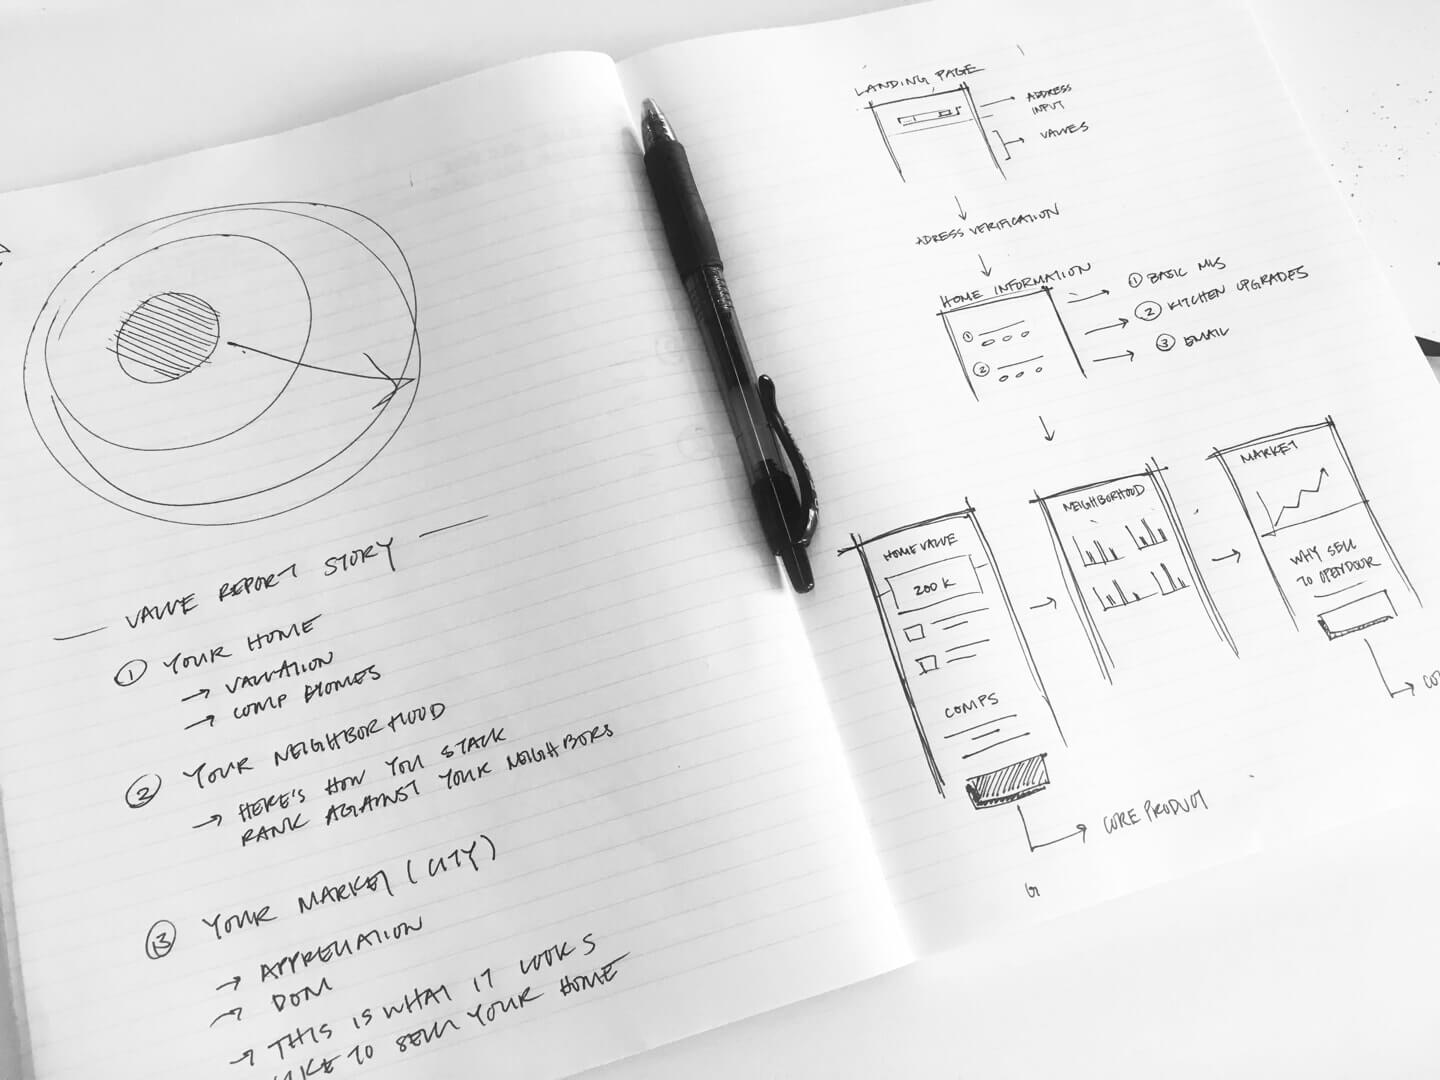 VALUE REPORT STORY
1 YOUR HOME
→ VALUATION
→ COMP HOMES
2 YOUR NEIGHBORHOOD
→ HERE'S HOW YOU STACK
RANK AGAINST YOUR NEIGHBORS
3 YOUR MARKET (CITY)
→ APPRECIATION
→ DOM
→ THIS IS WHAT IT LOOKS
LIKE TO SELL YOUR HOME
LANDING PAGE
→ ADDRESS
INPUT
→ VALUES
ADRESS VERIFICATION
HOME INFORMATION
1
2
→ 1 BASIC MLS
→ 2 KITCHEN UPGRADES
→ 3 EMAIL
HOME VALUE
200K
COMPS
→ CORE PRODUCT
NEIGHBORHOOD
MARKET
WHY SELL
TO OPENDOOR